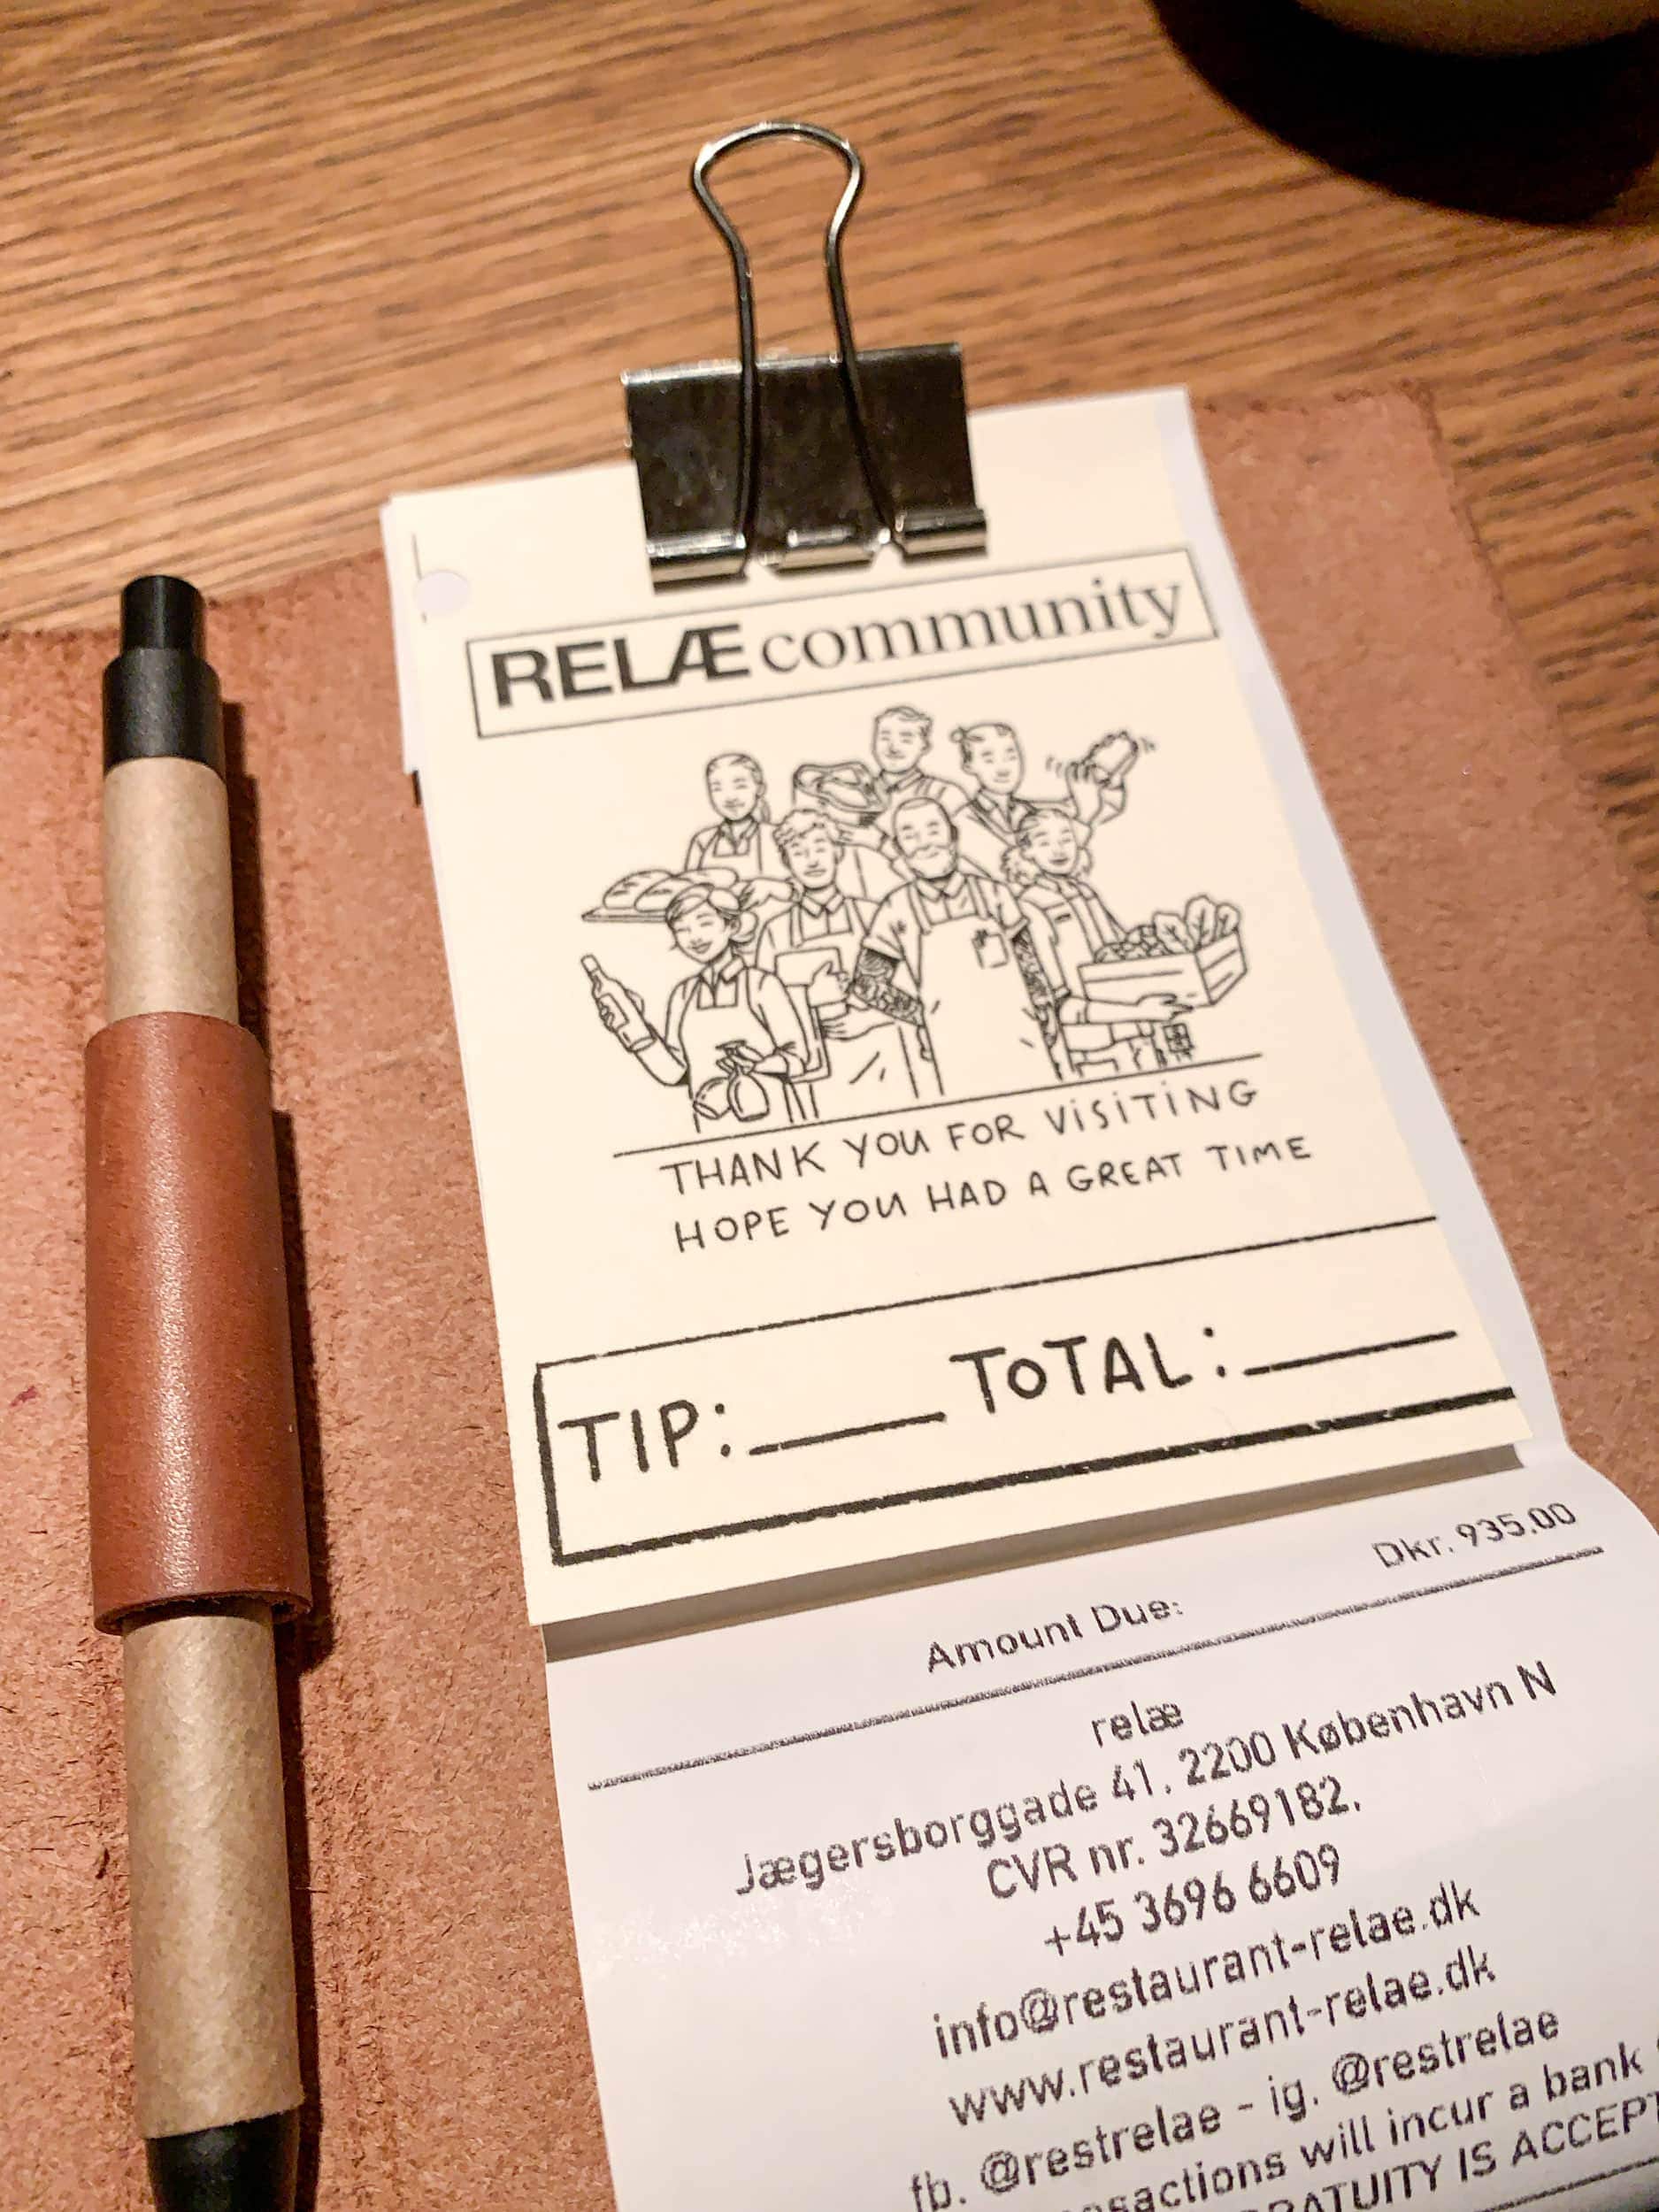 RELÆ community
THANK YOU FOR VISITING
HOPE YOU HAD A GREAT TIME
TIP: ____ TOTAL: ____
Dkr. 935.00
Amount Due:
relæ
Jægersborggade 41. 2200 København N
CVR nr. 32669182.
+45 3696 6609
info@restaurant-relae.dk
www.restaurant-relae.dk
fb. @restrelae - ig. @restrelae
will incur a bank
IS